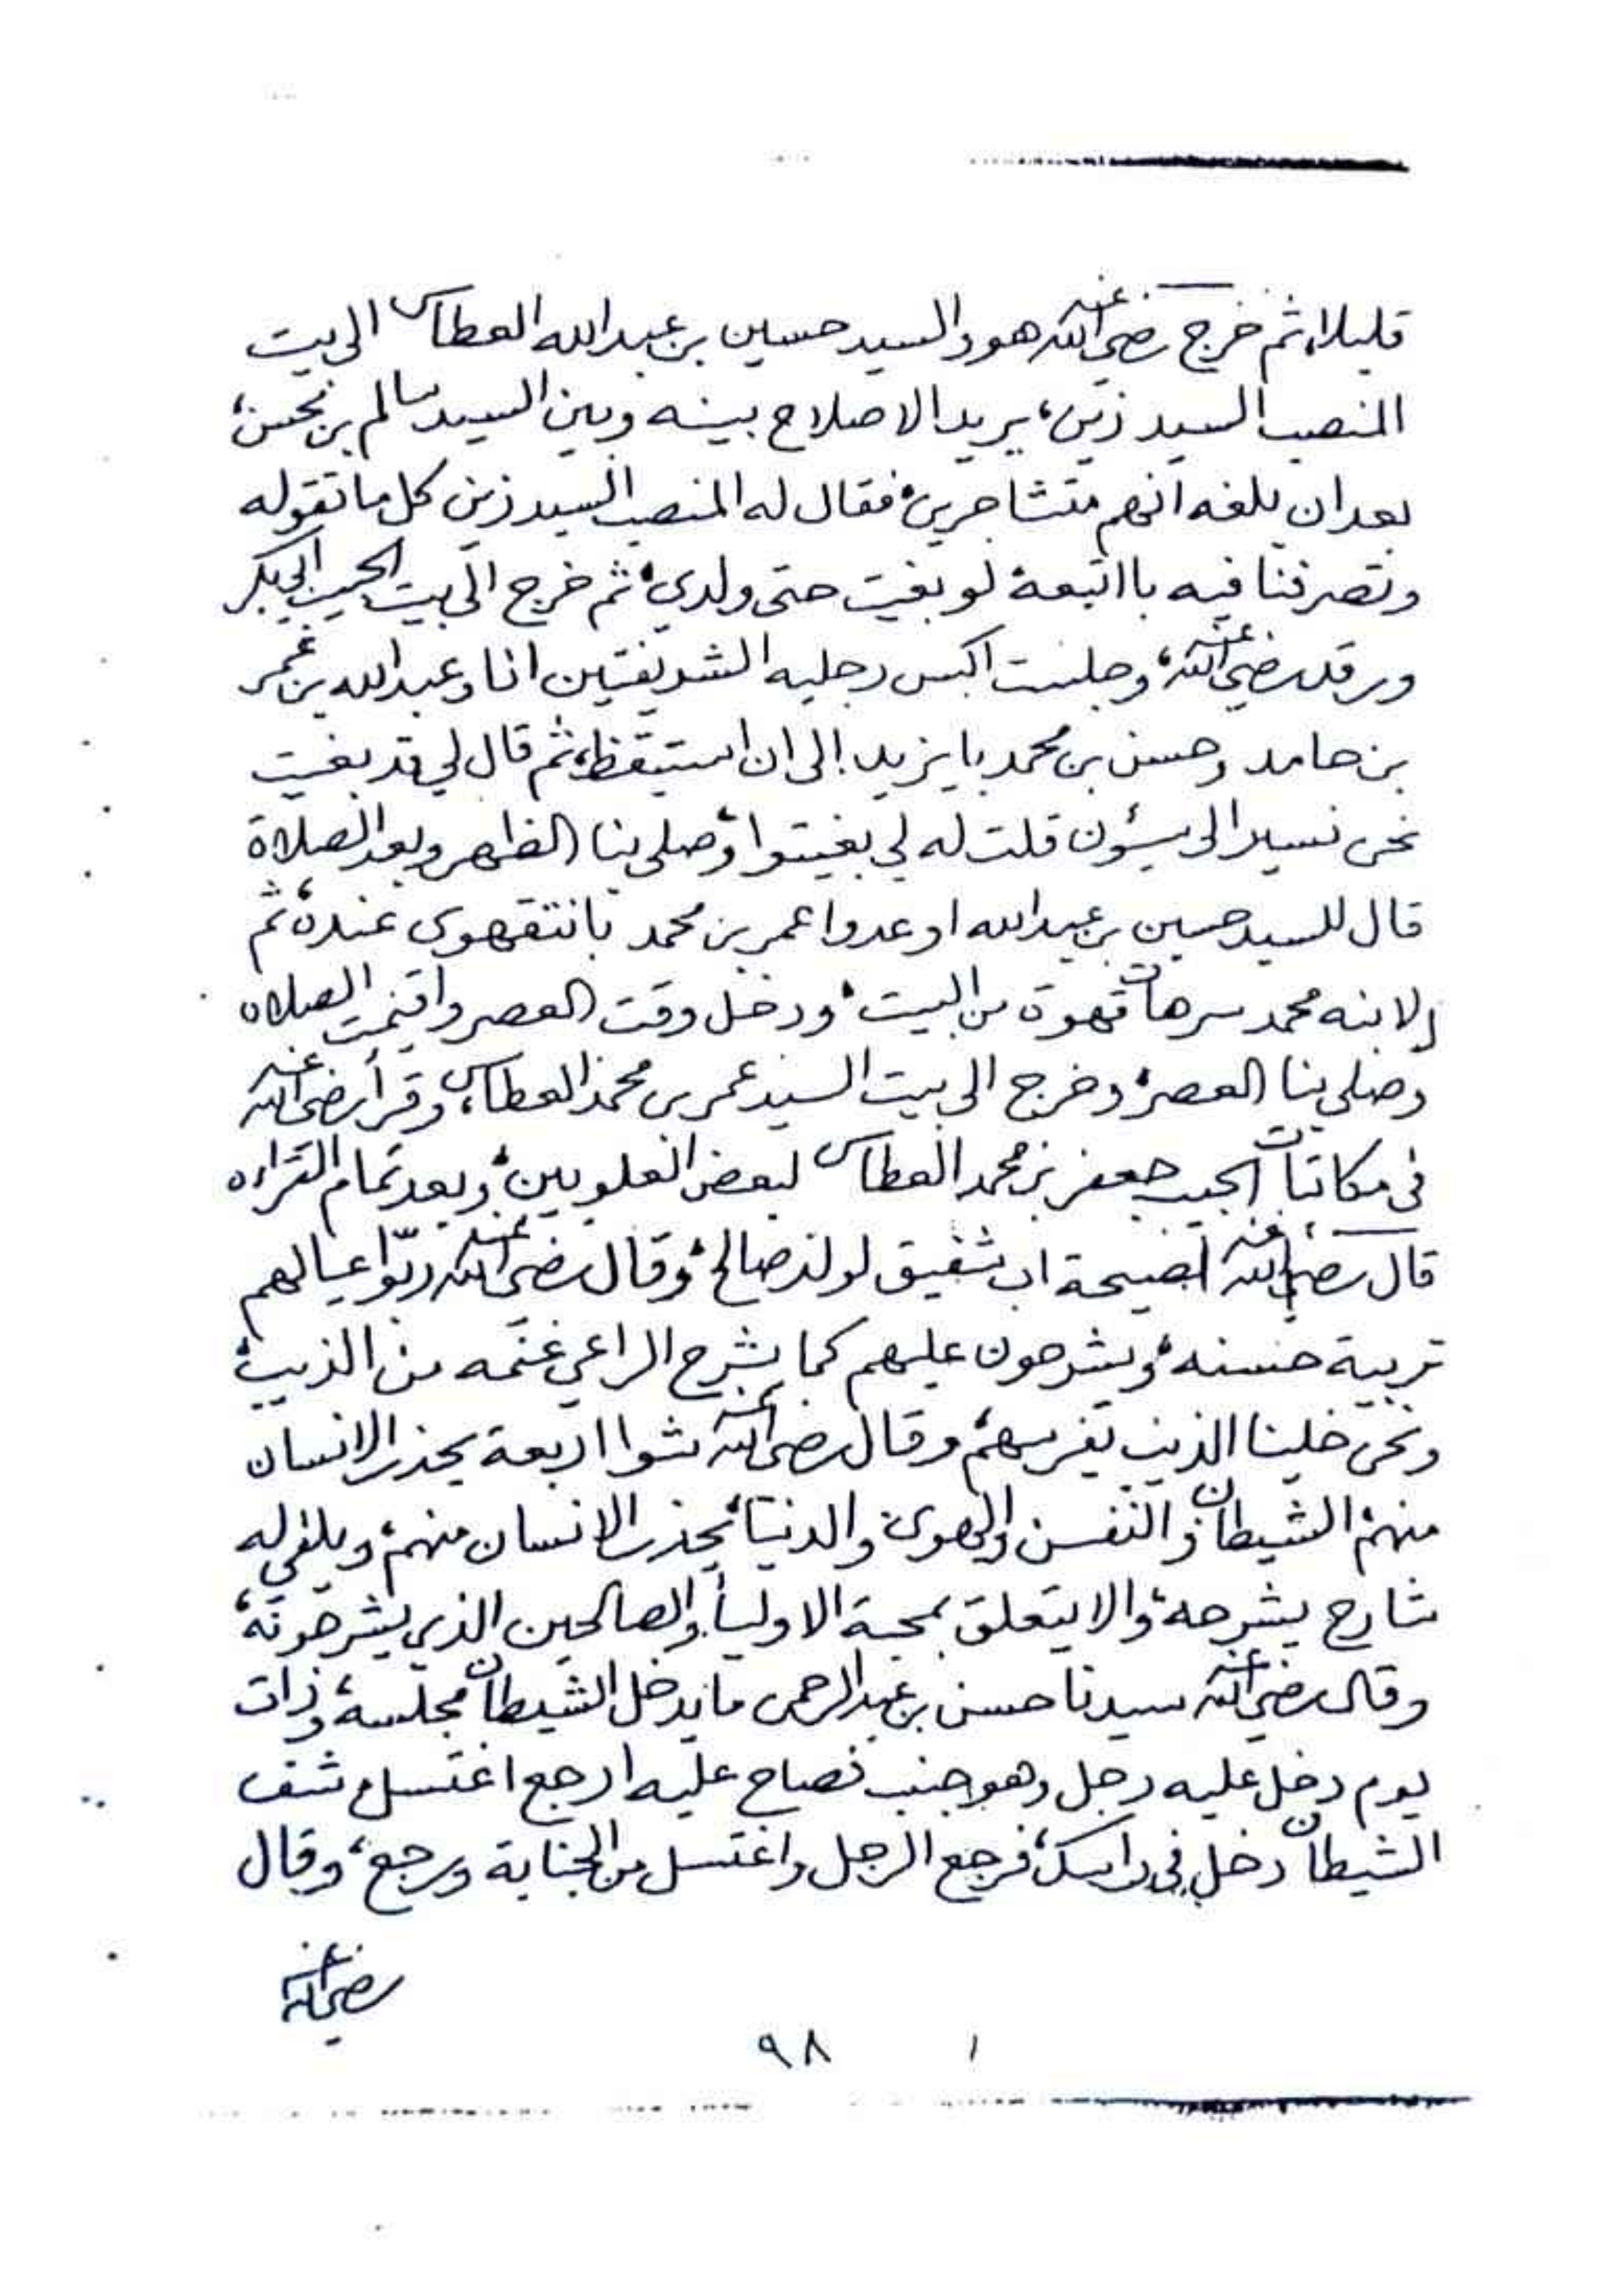 قليلا، ثم خرج رضي الله عنه هو والسيد حسين بن عبدالله العطاس الى بيت
المنصب السيد زين، يريد الاصلاح بينه وبين السيد سالم بن محسن،
بعد ان بلغه انهم متشاجرين، فقال له المنصب السيد زين كل ما تقوله
وتصرفنا فيه باانتبعه لو بغيت حتى ولدي، ثم خرج الى بيت الحبيب ابي بكر
ورقد رضي الله عنه، وجلست اكبس رجليه الشريفتين انا وعبدالله بن عمر
بن حامد وحسن بن محمد بايزيد الى ان استيقظ، ثم قال لي قد بغيت
نحن نسير الى سيؤن قلت له لي بغيتوا، وصلى بنا الظهر وبعد الصلاة
قال للسيد حسين بن عبدالله اوعدوا عمر بن محمد بانتقهوى عنده، ثم
لابنه محمد سر هات قهوة من البيت، ودخل وقت العصر واقيمت الصلاه
وصلى بنا العصر، وخرج الى بيت السيد عمر بن محمد العطاس، وقرأ رضي الله عنه
في مكاتبات الحبيب جعفر بن محمد العطاس لبعض العلويين، وبعد تمام القراءه
قال رضي الله عنه نصيحة اب شفيق لولد صالح، وقال رضي الله عنه ربّوا عيالهم
تربية حسنه، ويشرحون عليهم كما يشرح الراعي غنمه من الذيب،
ونحن خلينا الذيب يفرسهم، وقال رضي الله عنه شوا اربعة يحذر الانسان
منهم، الشيطان والنفس والهوى والدنيا، يحذر الانسان منهم، ويلقي له
شارح يشرحه، والا يتعلق بمحبة الاولياء والصالحين الذي يشرحونه،
وقال رضي الله عنه سيدنا حسن بن عبدالرحمن ما يدخل الشيطان مجلسه، وذات
يوم دخل عليه رجل وهو جنب فصاح عليه ارجع اغتسل شف
الشيطان دخل في راسك، فرجع الرجل واغتسل من الجنابة ورجع، وقال
رضي الله عنه
٩٨